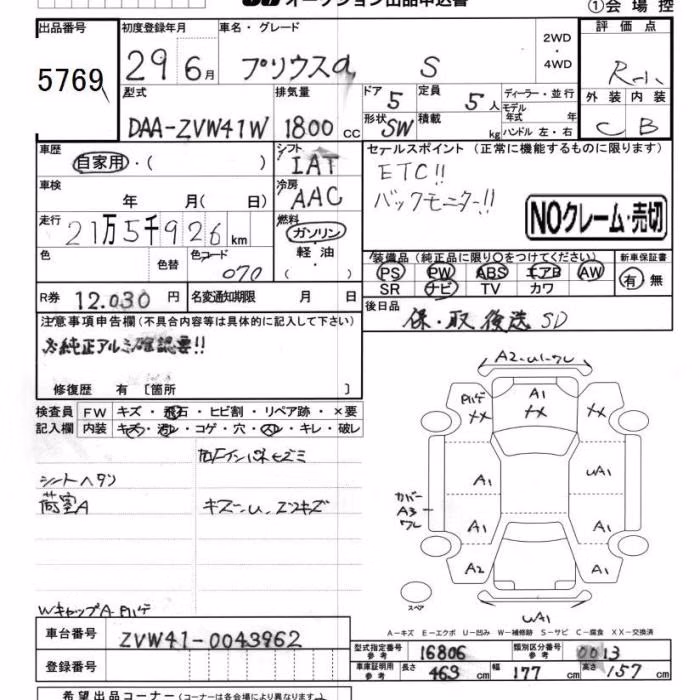 オークション出品申込書
①会場控
出品番号 初度登録年月 車名・グレード 評価点
5769
29 6月 プリウスα S 2WD・4WD
外装 内装
C B
型式 排気量 ドア 5 定員 5人 ディーラー・並行
DAA-ZVW41W 1800cc 形状 SW 積載 kg モデル年式 年
ハンドル 左・右
車歴 シフト セールスポイント (正常に機能するものに限ります)
自家用・( ) IAT ETC!!
車検 年 月( 日) 冷房 AAC バックモニター!!
NOクレーム・売切
走行 21万5千926km 燃料 ガソリン・軽油・( )
色 色替 色コード 070
装備品 (純正品に限り〇をつけてください) 新車保証書
PS PW ABS エアB AW 有・無
SR ナビ TV カワ
R券 12.030円 名変通知期限 月 日 後日品
保・取 後送 SD
注意事項申告欄 (不具合内容等は具体的に記入して下さい)
※純正アルミ確認要!!
修復歴 有 [箇所 ]
検査員記入欄 FW キズ・飛石・ヒビ割・リペア跡・×要
内装 キズ・汚レ・コゲ・穴・スレ・キレ・破レ
シートヘタリ
荷室A
A2-U1-ワレ
Pハゲ XX A1 XX XX
A1 UA1
カバー A3 ワレ
A1 A1
A2 A1
スペア
UA1
WキャップA-Pハゲ
A-キズ E-エクボ U-凹み W-補修跡 S-サビ C-腐食 XX-交換済
車台番号 ZVW41-0043962
型式指定番号 参考 16806 類別区分番号 参考 0013
登録番号
車庫証明用 参考 長さ 463cm 幅 177cm 高さ 157cm
希望出品コーナー (コーナーは各会場により異なります)